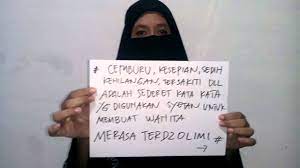 # CEMBURU, KESEPIAN, SEDIH
KEHILANGAN, TERSAKITI DLL
ADALAH SEDERET KATA KATA
YG DIGUNAKAN SYETAN UNTUK
MEMBUAT WANITA
MERASA TERDZOLIMI #